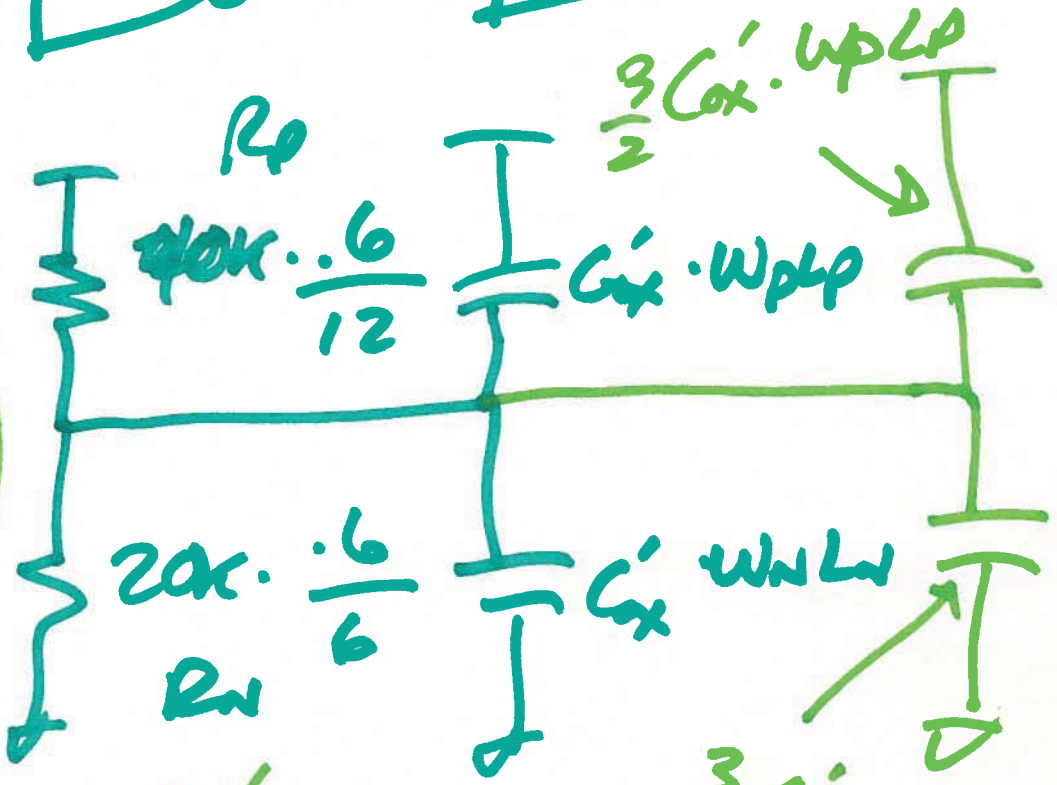 3/2 C'ox · WpLp
Rp
40K · .6/12
C'ox · WpLp
20K · .6/6
C'ox · WNLN
RN
3